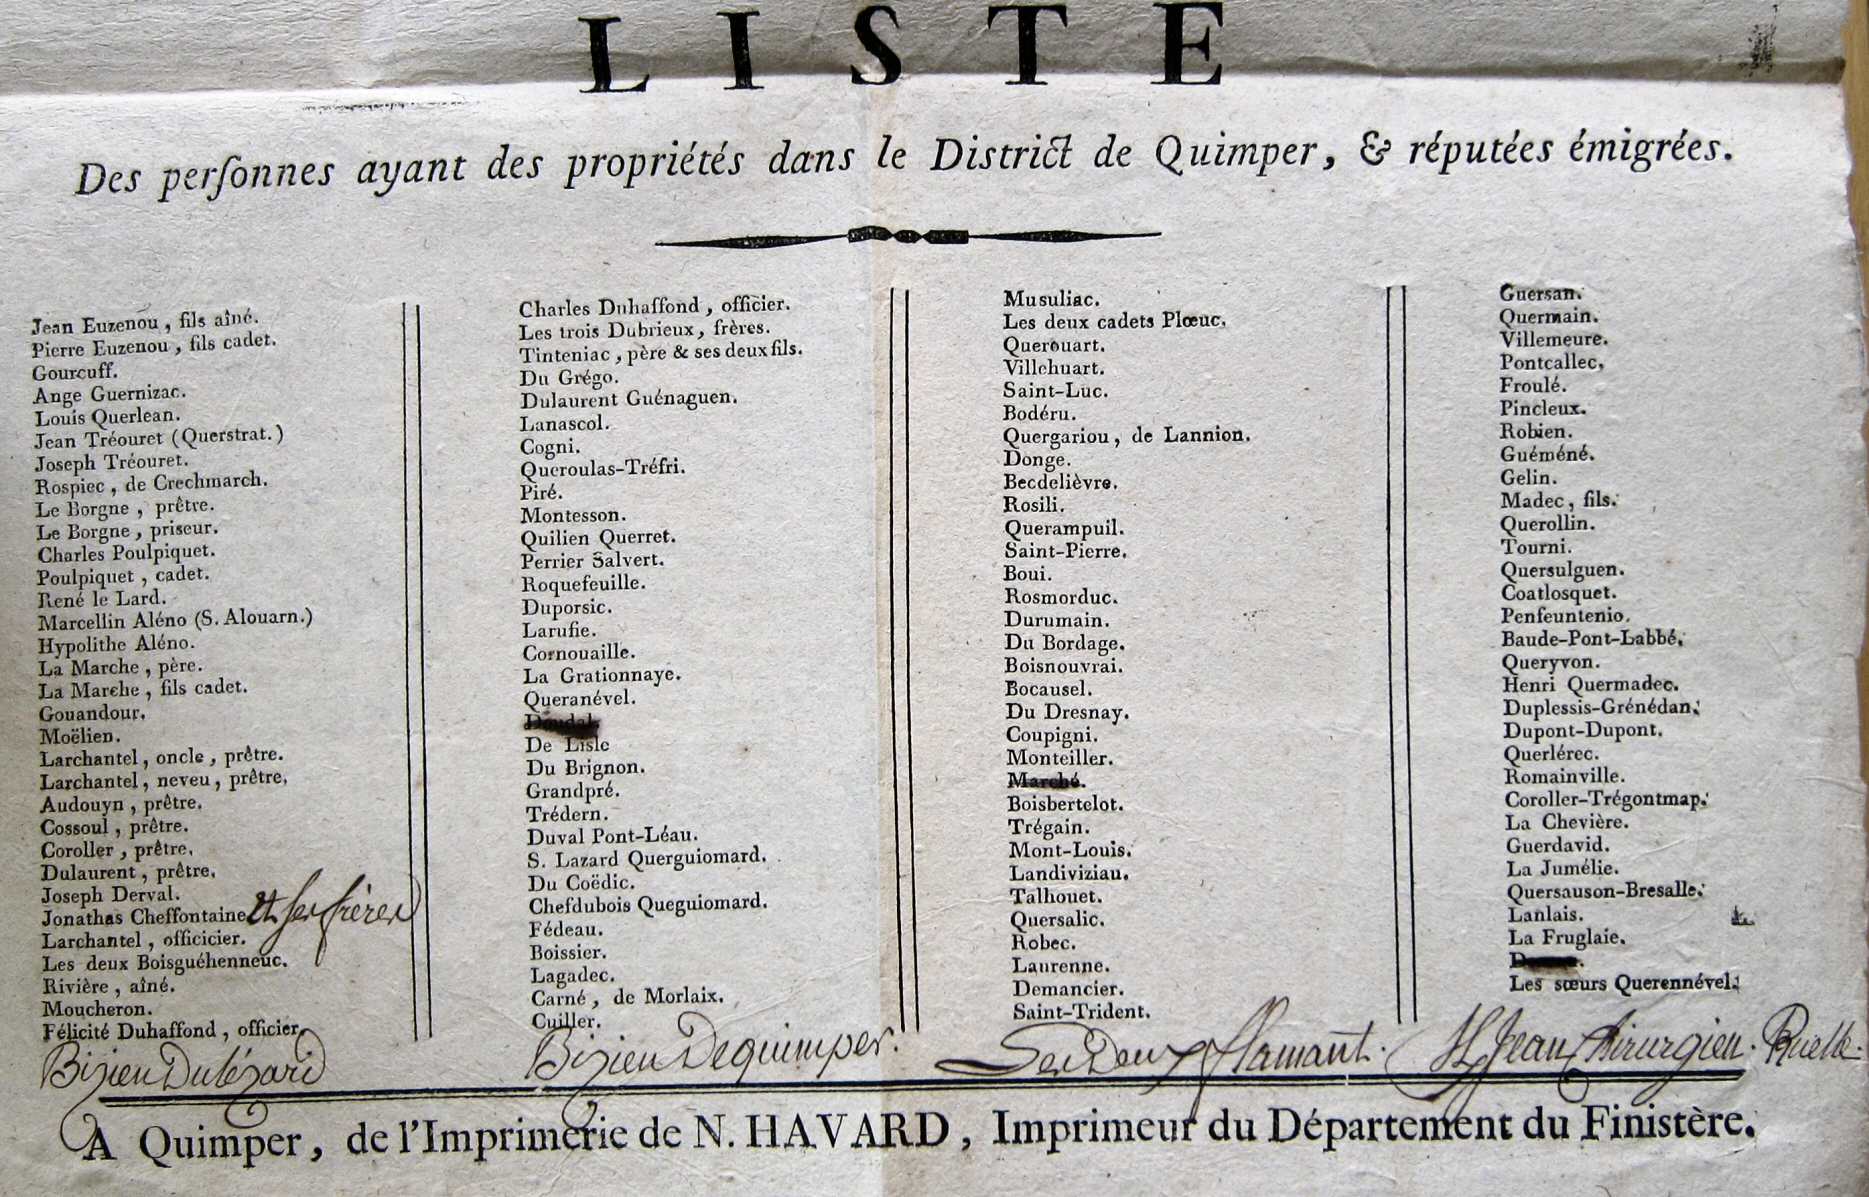 LISTE
Des perſonnes ayant des propriétés dans le District de Quimper, & réputées émigrées.
Jean Euzenou, fils aîné.
Pierre Euzenou, fils cadet.
Gourcuff.
Ange Guernizac.
Louis Querlean.
Jean Tréouret (Querstrat.)
Joseph Tréouret.
Rospiec, de Crechmarch.
Le Borgne, prêtre.
Le Borgne, priseur.
Charles Poulpiquet.
Poulpiquet, cadet.
René le Lard.
Marcellin Aléno (S. Alouarn.)
Hypolithe Aléno.
La Marche, père.
La Marche, fils cadet.
Gouandour.
Moëlien.
Larchantel, oncle, prêtre.
Larchantel, neveu, prêtre,
Audouyn, prêtre.
Cossoul, prêtre.
Coroller, prêtre,
Dulaurent, prêtre,
Joseph Derval.
Jonathas Cheffontaine et ses frères
Larchantel, officicier.
Les deux Boisguéhenneuc.
Rivière, aîné.
Moucheron.
Félicité Duhaffond, officier,
Bizien Dulézard
Charles Duhaffond, officier.
Les trois Dubrieux, frères.
Tinteniac, père & ses deux fils.
Du Grégo.
Dulaurent Guénaguen.
Lanascol.
Cogni.
Queroulas-Tréfri.
Piré.
Montesson.
Quilien Querret.
Perrier Salvert.
Roquefeuille.
Duporsic.
Larufie.
Cornouaille.
La Grationnaye.
Queranével.
Doudal.
De Lisle
Du Brignon.
Grandpré.
Trédern.
Duval Pont-Léau.
S. Lazard Querguiomard.
Du Coëdic.
Chefdubois Queguiomard.
Fédeau.
Boissier.
Lagadec.
Carné, de Morlaix.
Cuiller.
Bizien Dequimper.
Musuliac.
Les deux cadets Plœuc.
Querouart.
Villehuart.
Saint-Luc.
Bodéru.
Quergariou, de Lannion.
Donge.
Becdelièvre.
Rosili.
Querampuil.
Saint-Pierre.
Boui.
Rosmorduc.
Durumain.
Du Bordage.
Boisnouvrai.
Bocausel.
Du Dresnay.
Coupigni.
Monteiller.
Marché.
Boisbertelot.
Trégain.
Mont-Louis.
Landiviziau.
Talhouet.
Quersalic.
Robec.
Laurenne.
Demancier.
Saint-Trident.
Les Deux flamant.
Guersan.
Quermain.
Villemeure.
Pontcallec,
Froulé.
Pincleux.
Robien.
Guéméné.
Gelin.
Madec, fils.
Querollin.
Tourni.
Quersulguen.
Coatlosquet.
Penfeuntenio.
Baude-Pont-Labbé.
Queryvon.
Henri Quermadec.
Duplessis-Grénédan.
Dupont-Dupont.
Querlérec.
Romainville.
Coroller-Trégontmap.
La Chevière.
Guerdavid.
La Jumélie.
Quersauson-Bresalle.
Lanlais.
La Fruglaie.
Les sœurs Querennével.
St Jean Chirurgien. Ruelle.
A Quimper, de l'Imprimerie de N. HAVARD, Imprimeur du Département du Finistère.